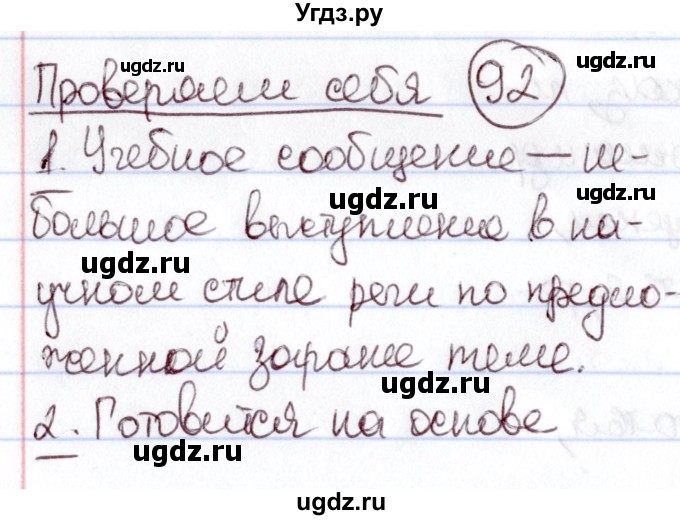 Угдз.ру
ugdz.ru ugdz.ru
Проверяем себя 92
ugdz.ru
1. Учебное сообщение — не-
ugdz.ru
большое выступление в на-
ugdz.ru
учном стиле речи по предло-
женной заранее теме.
ugdz.ru
2. Готовится на основе
ugdz.ru
ugdz.ru